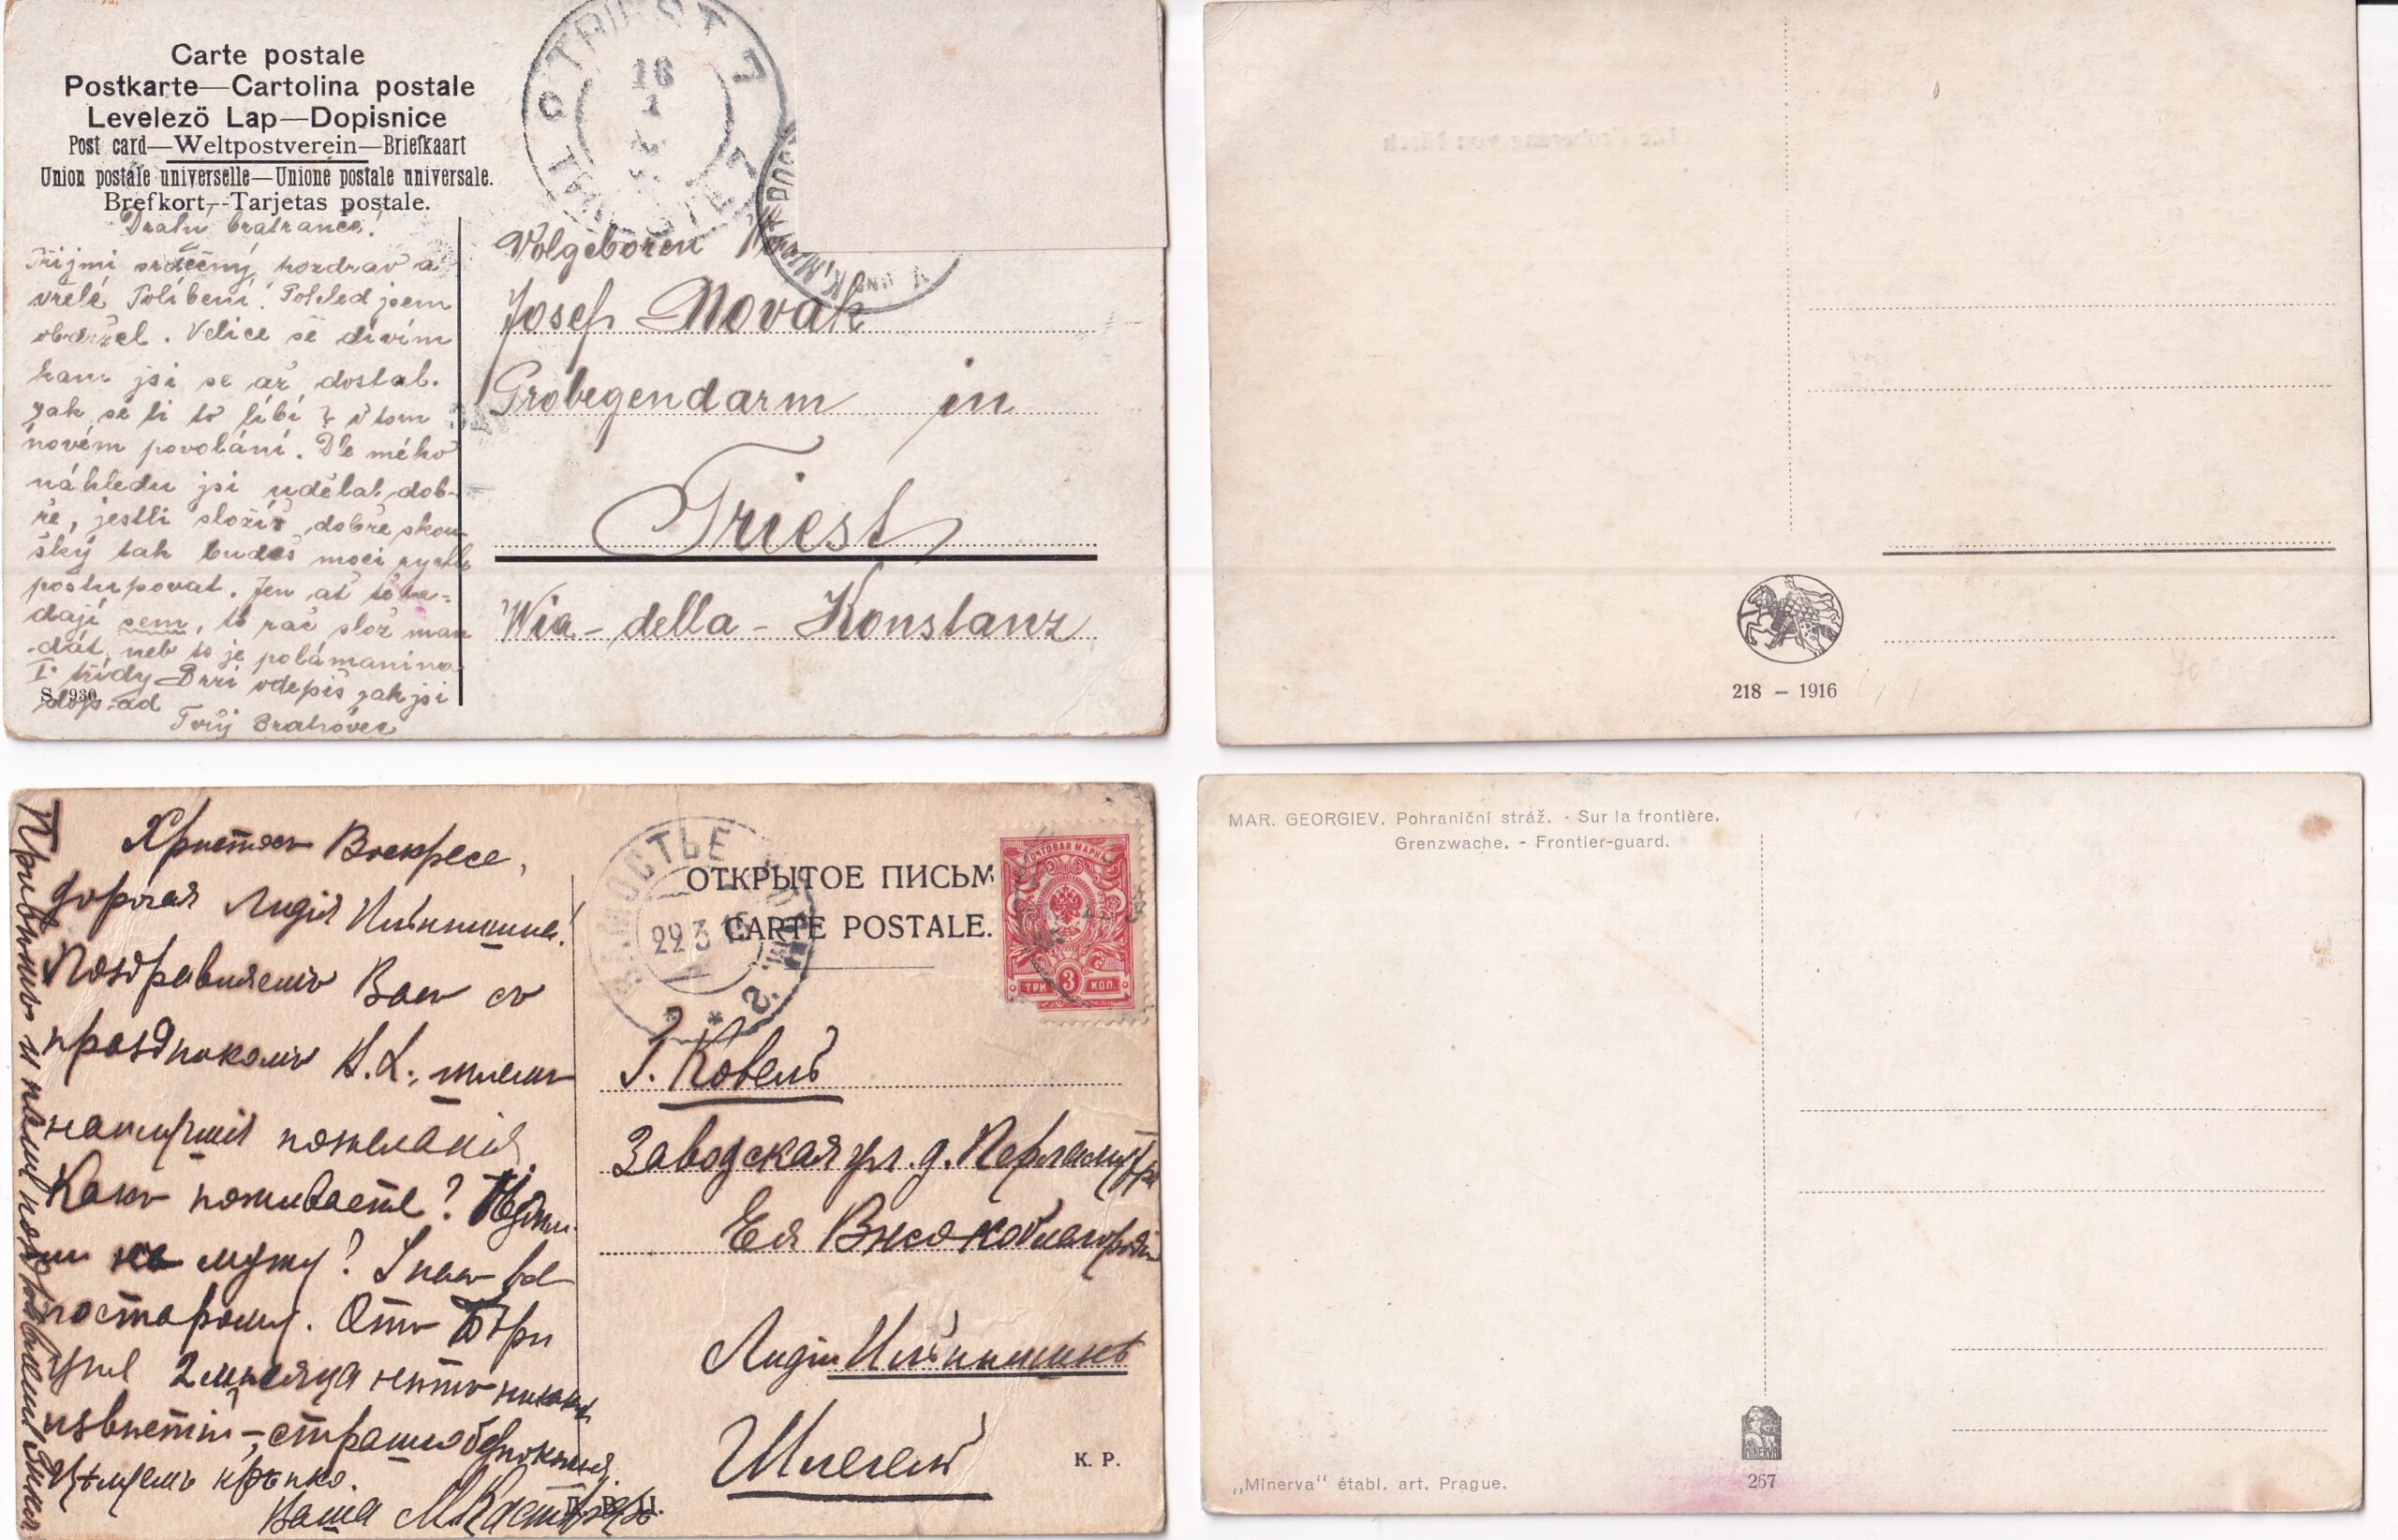 Carte postale
Postkarte—Cartolina postale
Levelezö Lap—Dopisnice
Post card—Weltpostverein—Briefkaart
Union postale universelle—Unione postale universale.
Brefkort—Tarjetas postale.
Drahý bratranče!
Přijmi srdečný pozdrav a
vřelé Políbení! Pohled jsem
obdržel. Velice se divím
kam jsi se až dostal.
Jak se ti to líbí v tom
novém povolání. Dle mého
náhledu jsi udělal dob-
ře, jestli složíš dobře skou-
šky tak budeš moci rychle
postupovat. Jen ať tě ne-
dají sem, to rač slož man
-dát, neb to je polámanina
I. třídy Brzi odepiš jak jsi
S. 930.
Tvůj Bratrovec
TRIEST
18
1
Volgeboren
Josef Novak
Grobegendarm in
Triest
Wia - della - Konstanz
218 – 1916
Христосъ Воскресе,
дорогая Лидія Ильинишна!
Поздравляемъ Васъ съ
праздникомъ И.Х., шлемъ
наилучшія пожеланія
Какъ поживаете?
къ мужу? У насъ все
по старому. Отъ
2 мѣсяца нѣтъ никакихъ
извѣстій – страшно безпокоимся.
Цѣлуемъ крѣпко.
Ваша
ЗАМОСТЬЕ
22 3 15
ОТКРЫТОЕ ПИСЬМ
CARTE POSTALE.
ПОЧТОВАЯ МАРКА
ТРИ 3 КОП
Г. Ковель
Заводская ул. д. Перламутра
Ея Высокоблагородію
Лидіи Ильинишнѣ
Шлегель
К. Р.
MAR. GEORGIEV. Pohraniční stráž. - Sur la frontière.
Grenzwache. - Frontier-guard.
MINERVA
„Minerva“ établ. art. Prague.
267